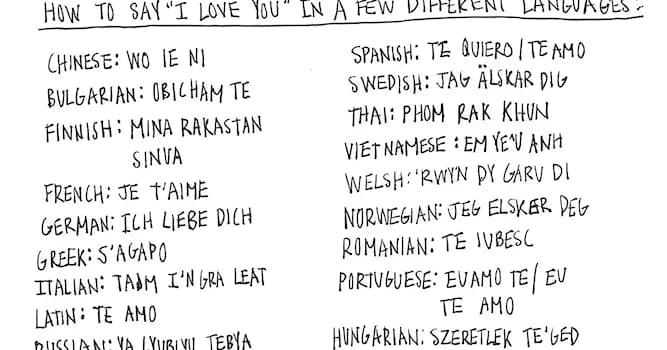 HOW TO SAY "I LOVE YOU" IN A FEW DIFFERENT LANGUAGES:
CHINESE: WO IE NI
BULGARIAN: OBICHAM TE
FINNISH: MINA RAKASTAN
SINVA
FRENCH: JE T'AIME
GERMAN: ICH LIEBE DICH
GREEK: S'AGAPO
ITALIAN: TAIM I'N GRA LEAT
LATIN: TE AMO
RUSSIAN: YA LYUBLYU TEBYA
SPANISH: TE QUIERO / TE AMO
SWEDISH: JAG ÄLSKAR DIG
THAI: PHOM RAK KHUN
VIETNAMESE: EM YE'U ANH
WELSH: 'RWY'N DY GARU DI
NORWEGIAN: JEG ELSKER DEG
ROMANIAN: TE IUBESC
PORTUGUESE: EU AMO TE / EU
TE AMO
HUNGARIAN: SZERETLEK TE'GED